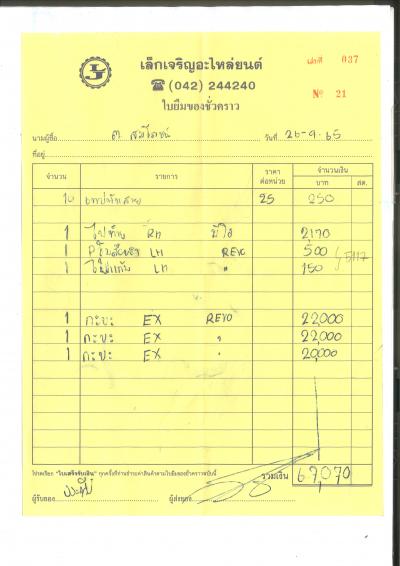 เล็กเจริญอะไหล่ยนต์
เล่มที่ 037
☎ (042) 244240
ใบยืมของชั่วคราว
No 21
นามผู้ซื้อ ต. วันที่ 26-9-65
ที่อยู่
จำนวน รายการ ราคาต่อหน่วย จำนวนเงิน
บาท สต.
10 25 250
1 RH มีไฟ 2170
1 LH REVO 500
1 LH " 150
5117
1 กะบะ EX REVO 22,000
1 กะบะ EX " 22,000
1 กะบะ EX " 20,000
โปรดเรียก "ใบเสร็จรับเงิน" ทุกครั้งที่ท่านชำระค่าสินค้าตามใบยืมของชั่วคราวฉบับนี้
รวมเงิน 67,070
ผู้รับของ ผู้ส่งของ